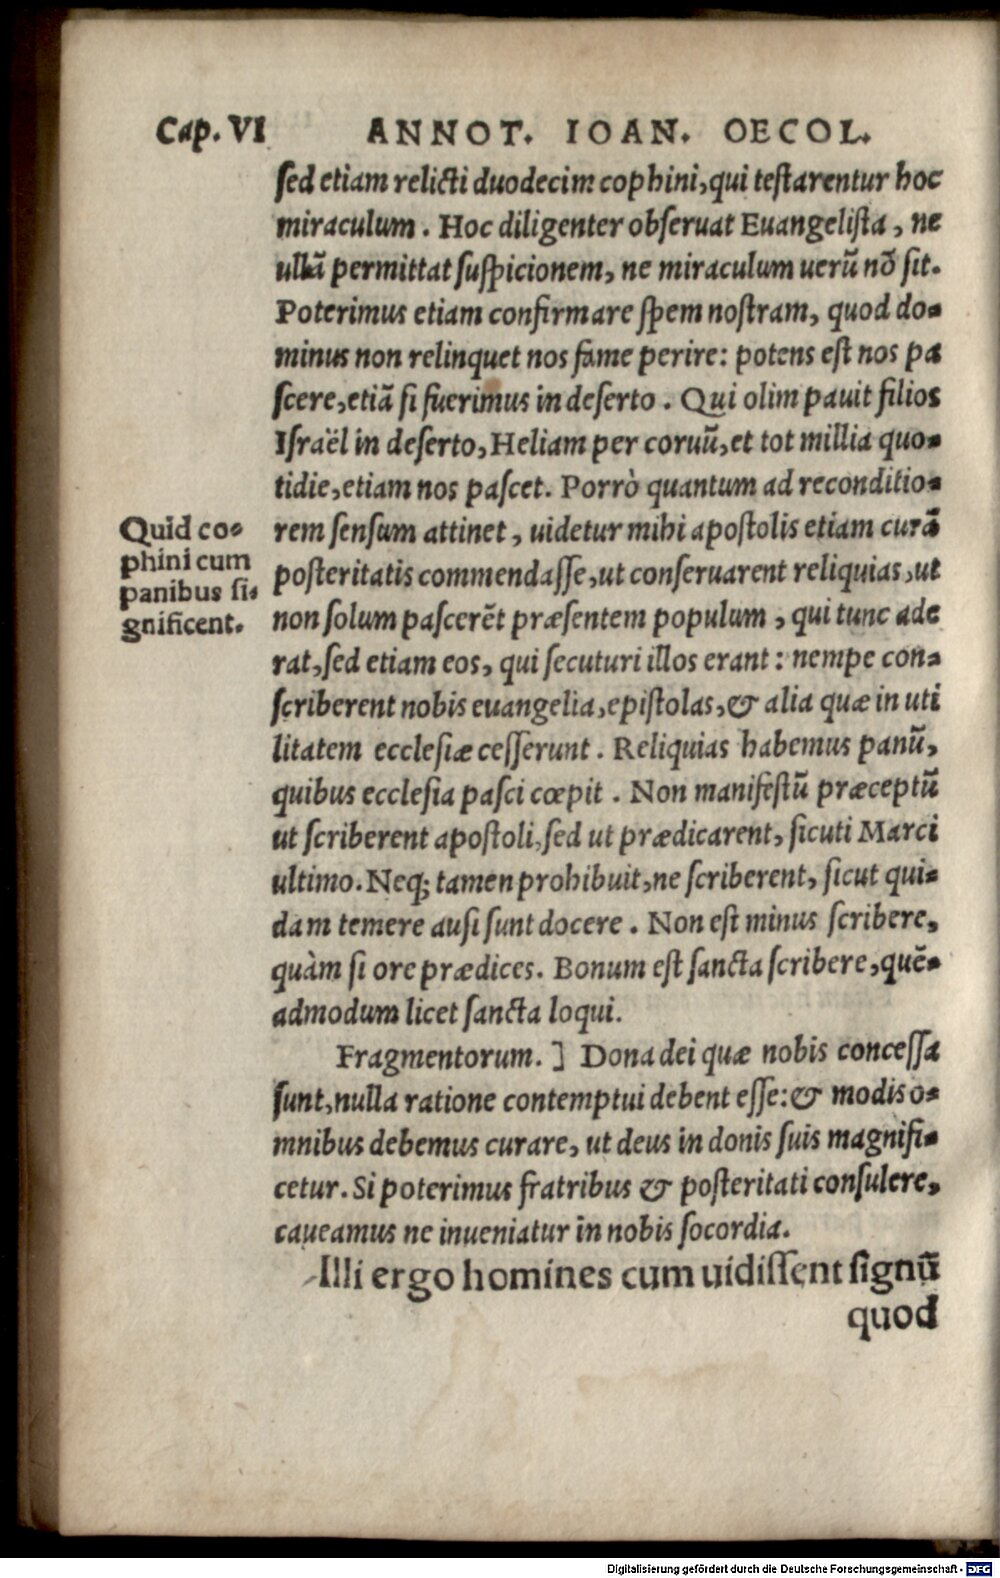 Cap. VI ANNOT. IOAN. OECOL.
sed etiam relicti duodecim cophini, qui testarentur hoc
miraculum. Hoc diligenter obseruat Euangelista, ne
ullā permittat suspicionem, ne miraculum uerū nō sit.
Poterimus etiam confirmare spem nostram, quod do-
minus non relinquet nos fame perire: potens est nos pa
scere, etiā si fuerimus in deserto. Qui olim pauit filios
Israël in deserto, Heliam per coruū, et tot millia quo-
tidie, etiam nos pascet. Porrò quantum ad reconditio-
rem sensum attinet, uidetur mihi apostolis etiam curā
posteritatis commendasse, ut conseruarent reliquias, ut
non solum pascerēt præsentem populum, qui tunc ade
rat, sed etiam eos, qui secuturi illos erant: nempe con-
scriberent nobis euangelia, epistolas, & alia quæ in uti
litatem ecclesiæ cesserunt. Reliquias habemus panū,
quibus ecclesia pasci cœpit. Non manifestū præceptū
ut scriberent apostoli, sed ut prædicarent, sicuti Marci
ultimo. Neq; tamen prohibuit, ne scriberent, sicut qui-
dam temere ausi sunt docere. Non est minus scribere,
quàm si ore prædices. Bonum est sancta scribere, quē-
admodum licet sancta loqui.
Fragmentorum. ] Dona dei quæ nobis concessa
sunt, nulla ratione contemptui debent esse: & modis o-
mnibus debemus curare, ut deus in donis suis magnifi-
cetur. Si poterimus fratribus & posteritati consulere,
caueamus ne inueniatur in nobis socordia.
Illi ergo homines cum uidissent signū
quod
Quid co-
phini cum
panibus si-
gnificent.
Digitalisierung gefördert durch die Deutsche Forschungsgemeinschaft - DFG